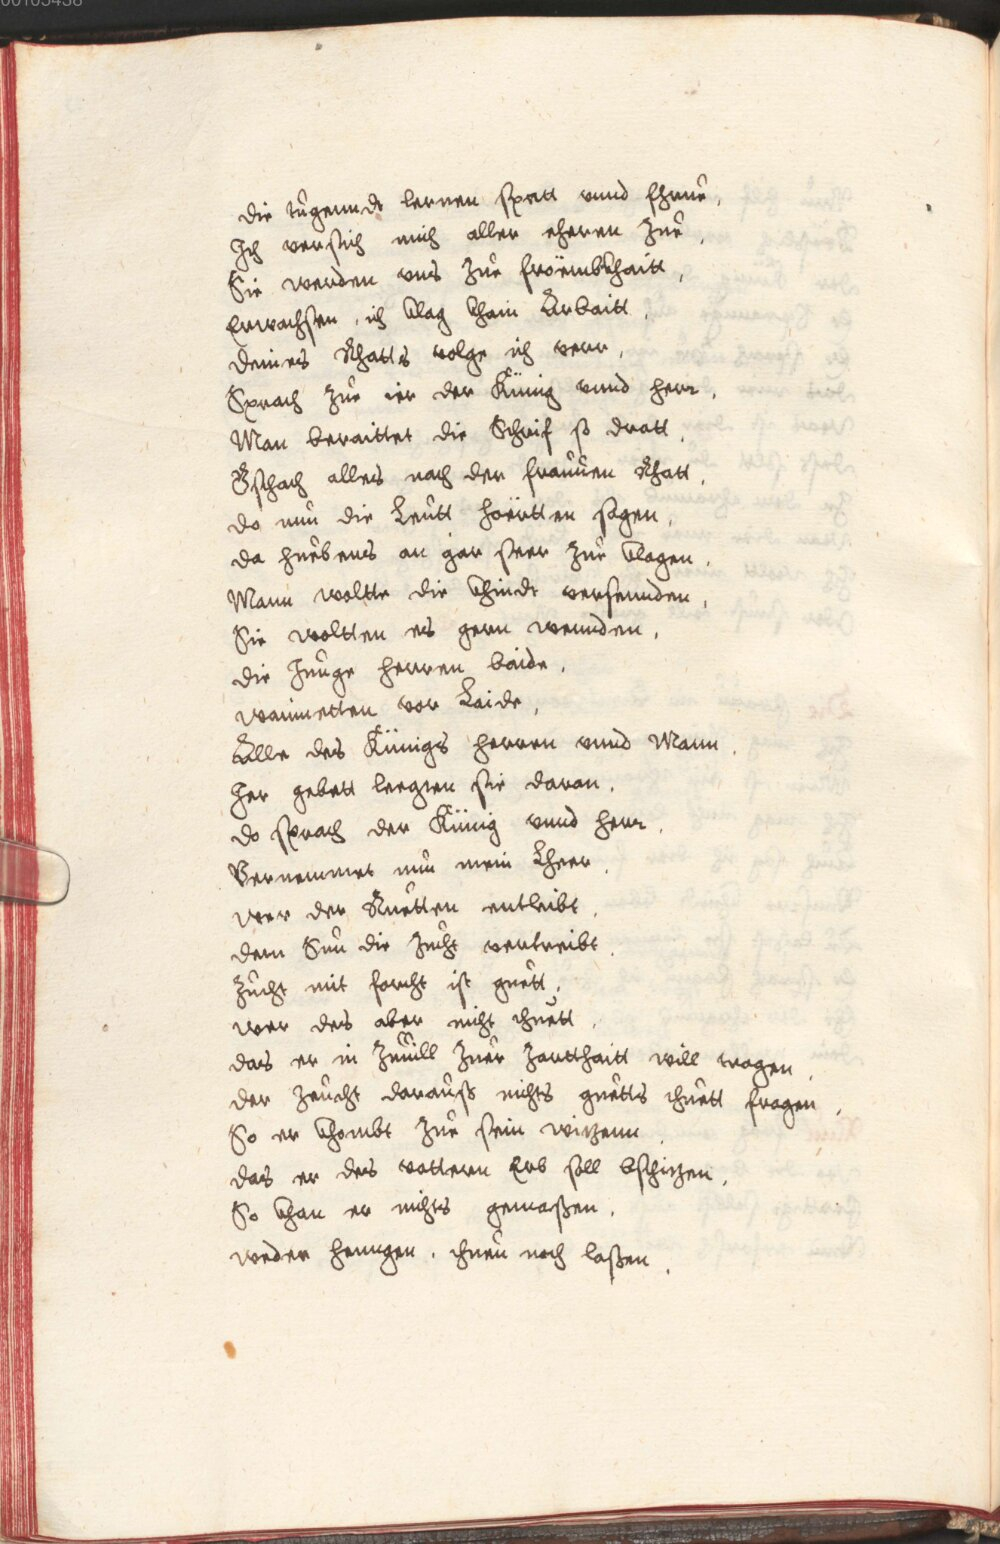 00105458
die tugennde lernen spatt vnnd fhrue,
Ich versich mich aller eheren Zue,
Sie werden vns Zue froembkhaitt,
Erwachsen, ich klag khain Arbaitt,
deines Rhatts volge ich verr,
Sprach Zue ier der König vnnd herr,
Man beraittet die Schif so dratt,
Gschach alles nach der frauuen Rhatt,
do nuu die Leutt hoërtten sagen,
da huebens an gar seer Zue klagen,
Mann woltte die khindt versennden,
Sie woltten es gern wennden,
die Junge herren baide,
wainnetten vor Laide,
Alle des Königs herren vnnd Mann,
Ier gebett leegten sie daran,
do sprach der König vnnd herr,
Vernemmet nuu mein Lheer,
wer der Ruetten entleibt,
dem Suu die Zucht vertreibt,
Zucht mit forcht ist guett,
wer des aber nicht thuett,
das er in Zeuill Zuer Zartthaitt will wagen,
der Zeucht darauß nichts guetts thuett fragen,
So er khombt Zue sein witzenn,
das er des vattern Erb soll bschitzen,
So khan er nichts gemaßen,
weder henngen, thuen noch laßen,